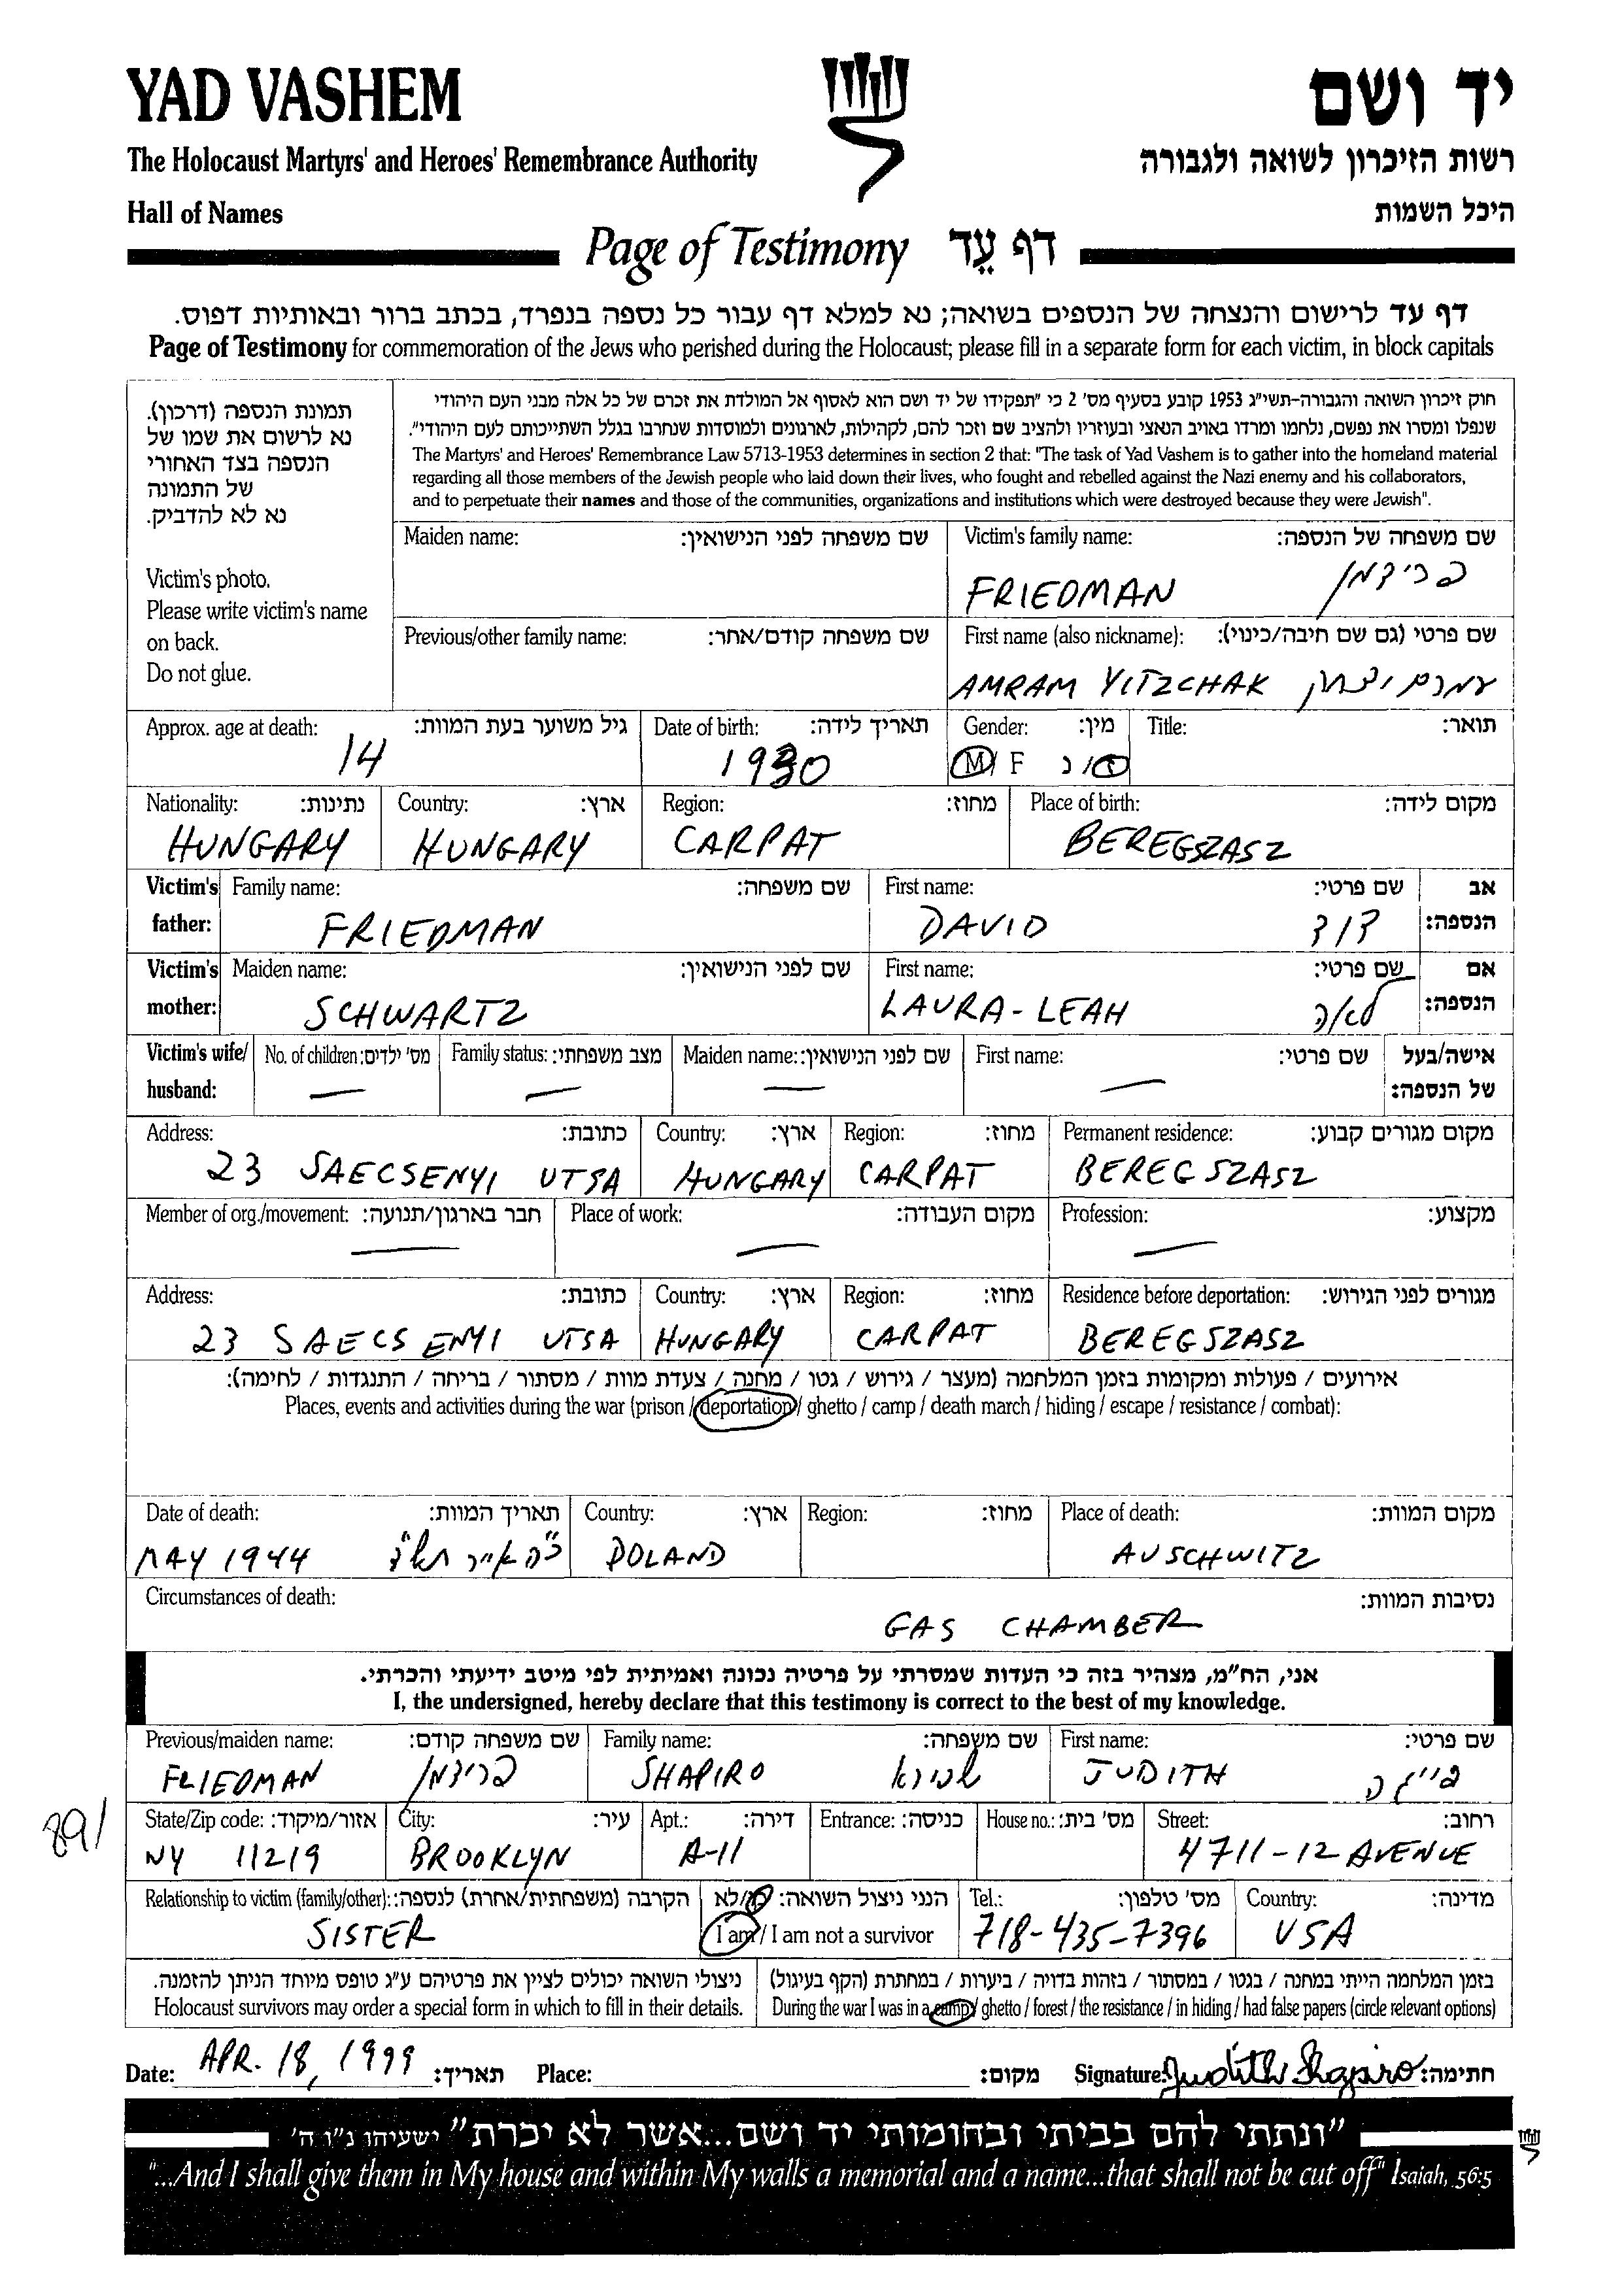 YAD VASHEM
יד ושם
The Holocaust Martyrs' and Heroes' Remembrance Authority
רשות הזיכרון לשואה ולגבורה
Hall of Names
היכל השמות
Page of Testimony דף עֵד
דף עד לרישום והנצחה של הנספים בשואה; נא למלא דף עבור כל נספה בנפרד, בכתב ברור ובאותיות דפוס.
Page of Testimony for commemoration of the Jews who perished during the Holocaust; please fill in a separate form for each victim, in block capitals
תמונת הנספה (דרכון).
נא לרשום את שמו של
הנספה בצד האחורי
של התמונה
נא לא להדביק.
Victim's photo.
Please write victim's name
on back.
Do not glue.
חוק זיכרון השואה והגבורה-תשי"ג 1953 קובע בסעיף מס' 2 כי "תפקידו של יד ושם הוא לאסוף אל המולדת את זכרם של כל אלה מבני העם היהודי
שנפלו ומסרו את נפשם, נלחמו ומרדו באויב הנאצי ובעוזריו ולהציב שם וזכר להם, לקהילות, לארגונים ולמוסדות שנחרבו בגלל השתייכותם לעם היהודי".
The Martyrs' and Heroes' Remembrance Law 5713-1953 determines in section 2 that: "The task of Yad Vashem is to gather into the homeland material
regarding all those members of the Jewish people who laid down their lives, who fought and rebelled against the Nazi enemy and his collaborators,
and to perpetuate their names and those of the communities, organizations and institutions which were destroyed because they were Jewish".
Maiden name: שם משפחה לפני הנישואין:
Victim's family name: שם משפחה של הנספה:
FRIEDMAN פרידמן
Previous/other family name: שם משפחה קודם/אחר:
First name (also nickname): שם פרטי (גם שם חיבה/כינוי):
AMRAM YITZCHAK עמרם יצחק
Approx. age at death: גיל משוער בעת המוות: Date of birth: תאריך לידה: Gender: מין: Title: תואר:
14 1930 M/ F ז/ נ
Nationality: נתינות: Country: ארץ: Region: מחוז: Place of birth: מקום לידה:
HUNGARY HUNGARY CARPAT BEREGSZASZ
Victim's father: Family name: שם משפחה: First name: שם פרטי: אב הנספה:
FRIEDMAN DAVID דוד
Victim's mother: Maiden name: שם לפני הנישואין: First name: שם פרטי: אם הנספה:
SCHWARTZ LAURA-LEAH לאה
Victim's wife/ husband: No. of children: מס' ילדים: Family status: מצב משפחתי: Maiden name: שם לפני הנישואין: First name: שם פרטי: אישה/בעל של הנספה:
— — — —
Address: כתובת: Country: ארץ: Region: מחוז: Permanent residence: מקום מגורים קבוע:
23 SAECSENYI UTSA HUNGARY CARPAT BEREGSZASZ
Member of org./movement: חבר בארגון/תנועה: Place of work: מקום העבודה: Profession: מקצוע:
— — —
Address: כתובת: Country: ארץ: Region: מחוז: Residence before deportation: מגורים לפני הגירוש:
23 SAECSENYI UTSA HUNGARY CARPAT BEREGSZASZ
אירועים / פעולות ומקומות בזמן המלחמה (מעצר / גירוש / גטו / מחנה / צעדת מוות / מסתור / בריחה / התנגדות / לחימה):
Places, events and activities during the war (prison / deportation / ghetto / camp / death march / hiding / escape / resistance / combat):
Date of death: תאריך המוות: Country: ארץ: Region: מחוז: Place of death: מקום המוות:
MAY 1944 כ"ה אייר תש"ד POLAND AUSCHWITZ
Circumstances of death: נסיבות המוות:
GAS CHAMBER
אני, הח"מ, מצהיר בזה כי העדות שמסרתי על פרטיה נכונה ואמיתית לפי מיטב ידיעתי והכרתי.
I, the undersigned, hereby declare that this testimony is correct to the best of my knowledge.
Previous/maiden name: שם משפחה קודם: Family name: שם משפחה: First name: שם פרטי:
FRIEDMAN פרידמן SHAPIRO שפירא JUDITH פייגה
891
State/Zip code: אזור/מיקוד: City: עיר: Apt.: דירה: Entrance: כניסה: House no.: מס' בית: Street: רחוב:
NY 11219 BROOKLYN A-11 4711-12 AVENUE
Relationship to victim (family/other): הקרבה (משפחתית/אחרת) לנספה: הנני ניצול השואה: כן/לא Tel.: מס' טלפון: Country: מדינה:
SISTER I am / I am not a survivor 718-435-7396 USA
ניצולי השואה יכולים לציין את פרטיהם ע"ג טופס מיוחד הניתן להזמנה.
Holocaust survivors may order a special form in which to fill in their details.
בזמן המלחמה הייתי במחנה / בגטו / במסתור / בזהות בדויה / ביערות / במחתרת (הקף בעיגול)
During the war I was in a camp / ghetto / forest / the resistance / in hiding / had false papers (circle relevant options)
Date: APR. 18, 1999 תאריך: Place: מקום: Signature: Judith Shapiro חתימה:
"ונתתי להם בביתי ובחומותי יד ושם...אשר לא יכרת" ישעיהו נ"ו ה'
"...And I shall give them in My house and within My walls a memorial and a name...that shall not be cut off" Isaiah, 56:5